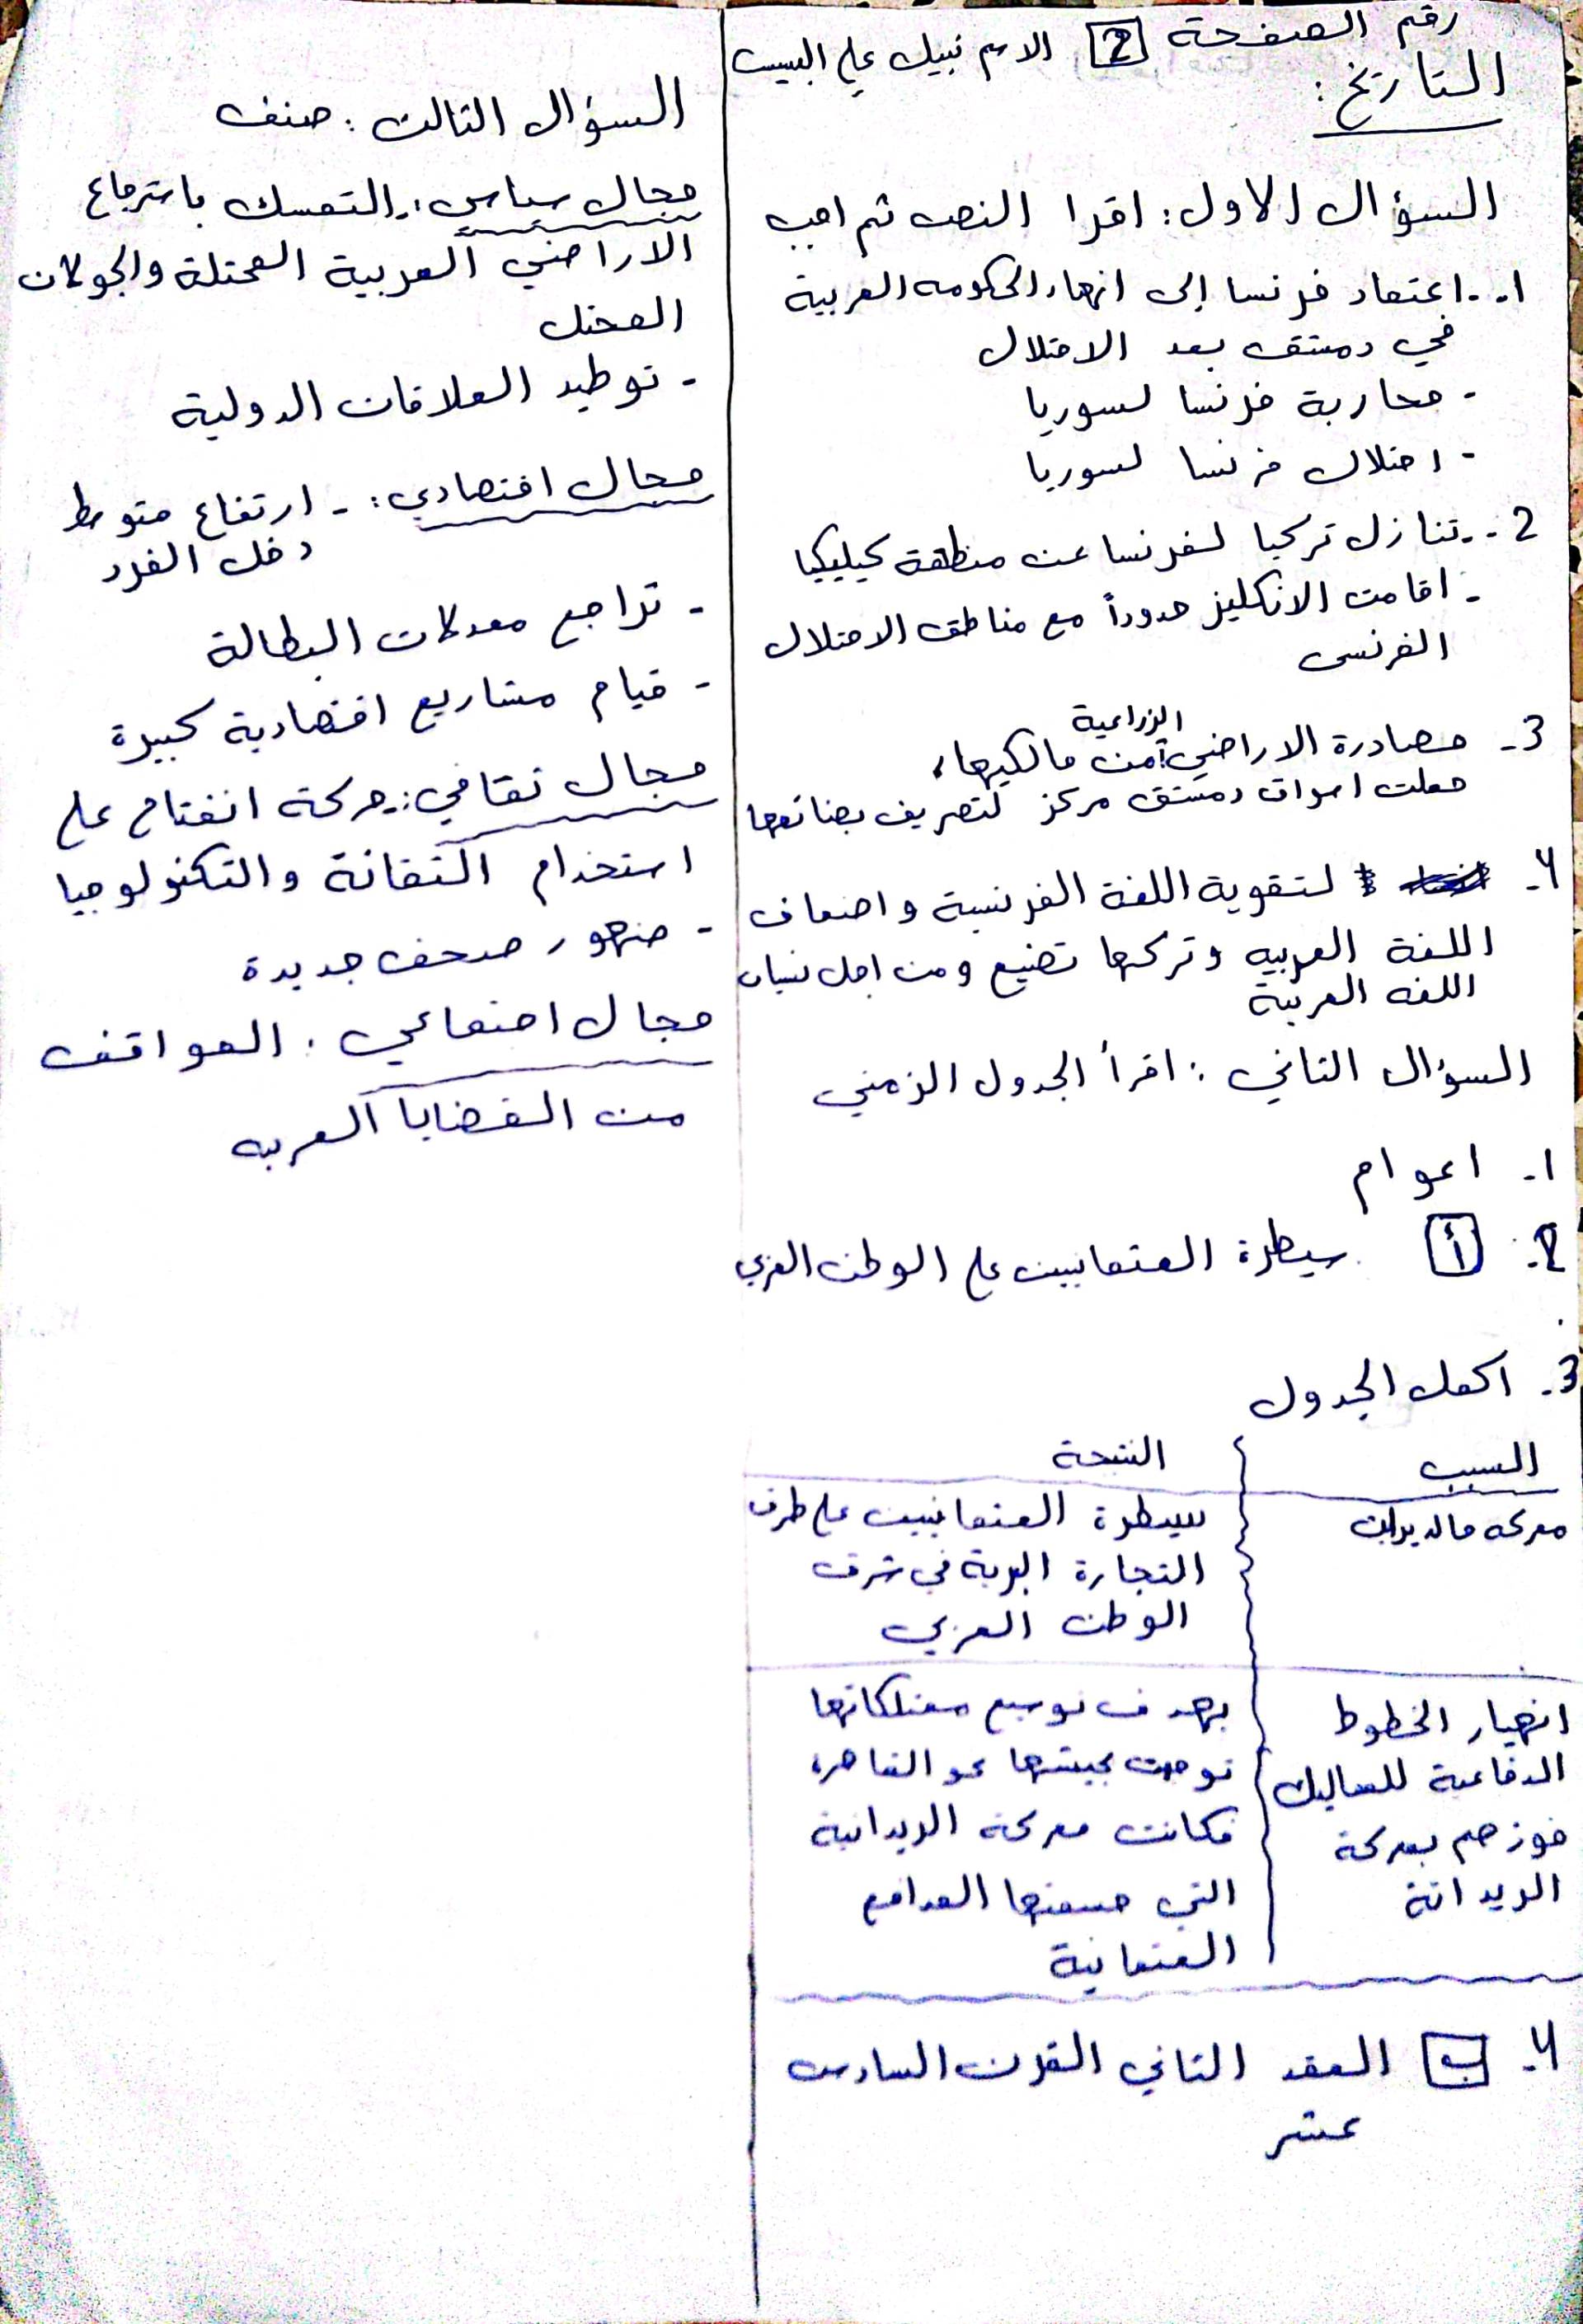 رقم الصفحة 2 الاسم نبيل علي
التاريخ:
السؤال الاول: اقرا النص ثم اجب
1.- اعتماد فرنسا إلى انهاء الحكومه العربية
في دمشق بعد الاحتلال
- محاربة فرنسا لسوريا
- احتلال فرنسا لسوريا
2.- تنازل تركيا لفرنسا عن منطقة كيليكيا
- اقامت الانكليز حدوداً مع مناطق الاحتلال
الفرنسي
3- مصادرة الاراضي الزراعية من مالكيها،
جعلت اسواق دمشق مركز لتصريف بضائعها
4- لتقوية اللغة الفرنسية واضعاف
اللغة العربيه وتركها تضيع ومن اجل نسيان
اللغه العربية
السؤال الثاني: اقرأ الجدول الزمني
1- اعوام
2- أ سيطرة العثمانيين على الوطن العربي
3- اكمل الجدول
السبب النتيجة
معركه سيطرة العثمانيين على طرق
التجارة البرية في شرق
الوطن العربي
انهيار الخطوط بهدف توسيع ممتلكاتها
الدفاعية للمماليك توجهت بجيشها نحو القاهرة
فوزهم بمعركة فكانت معركة الريدانية
الريدانة التي حسمتها المدافع
العثمانية
4- ب العقد الثاني القرن السادس
عشر
السؤال الثالث: صنف
مجال سياسي: التمسك باسترجاع
الاراضي العربية المحتلة والجولان
المحتل
- توطيد العلاقات الدولية
مجال اقتصادي: - ارتفاع متوسط
دخل الفرد
- تراجع معدلات البطالة
- قيام مشاريع اقتصادية كبيرة
مجال ثقافي: حركة انفتاح على
استخدام التقانة والتكنولوجيا
- ضهور صحف جديدة
مجال اجتماعي: المواقف
من القضايا العربيه